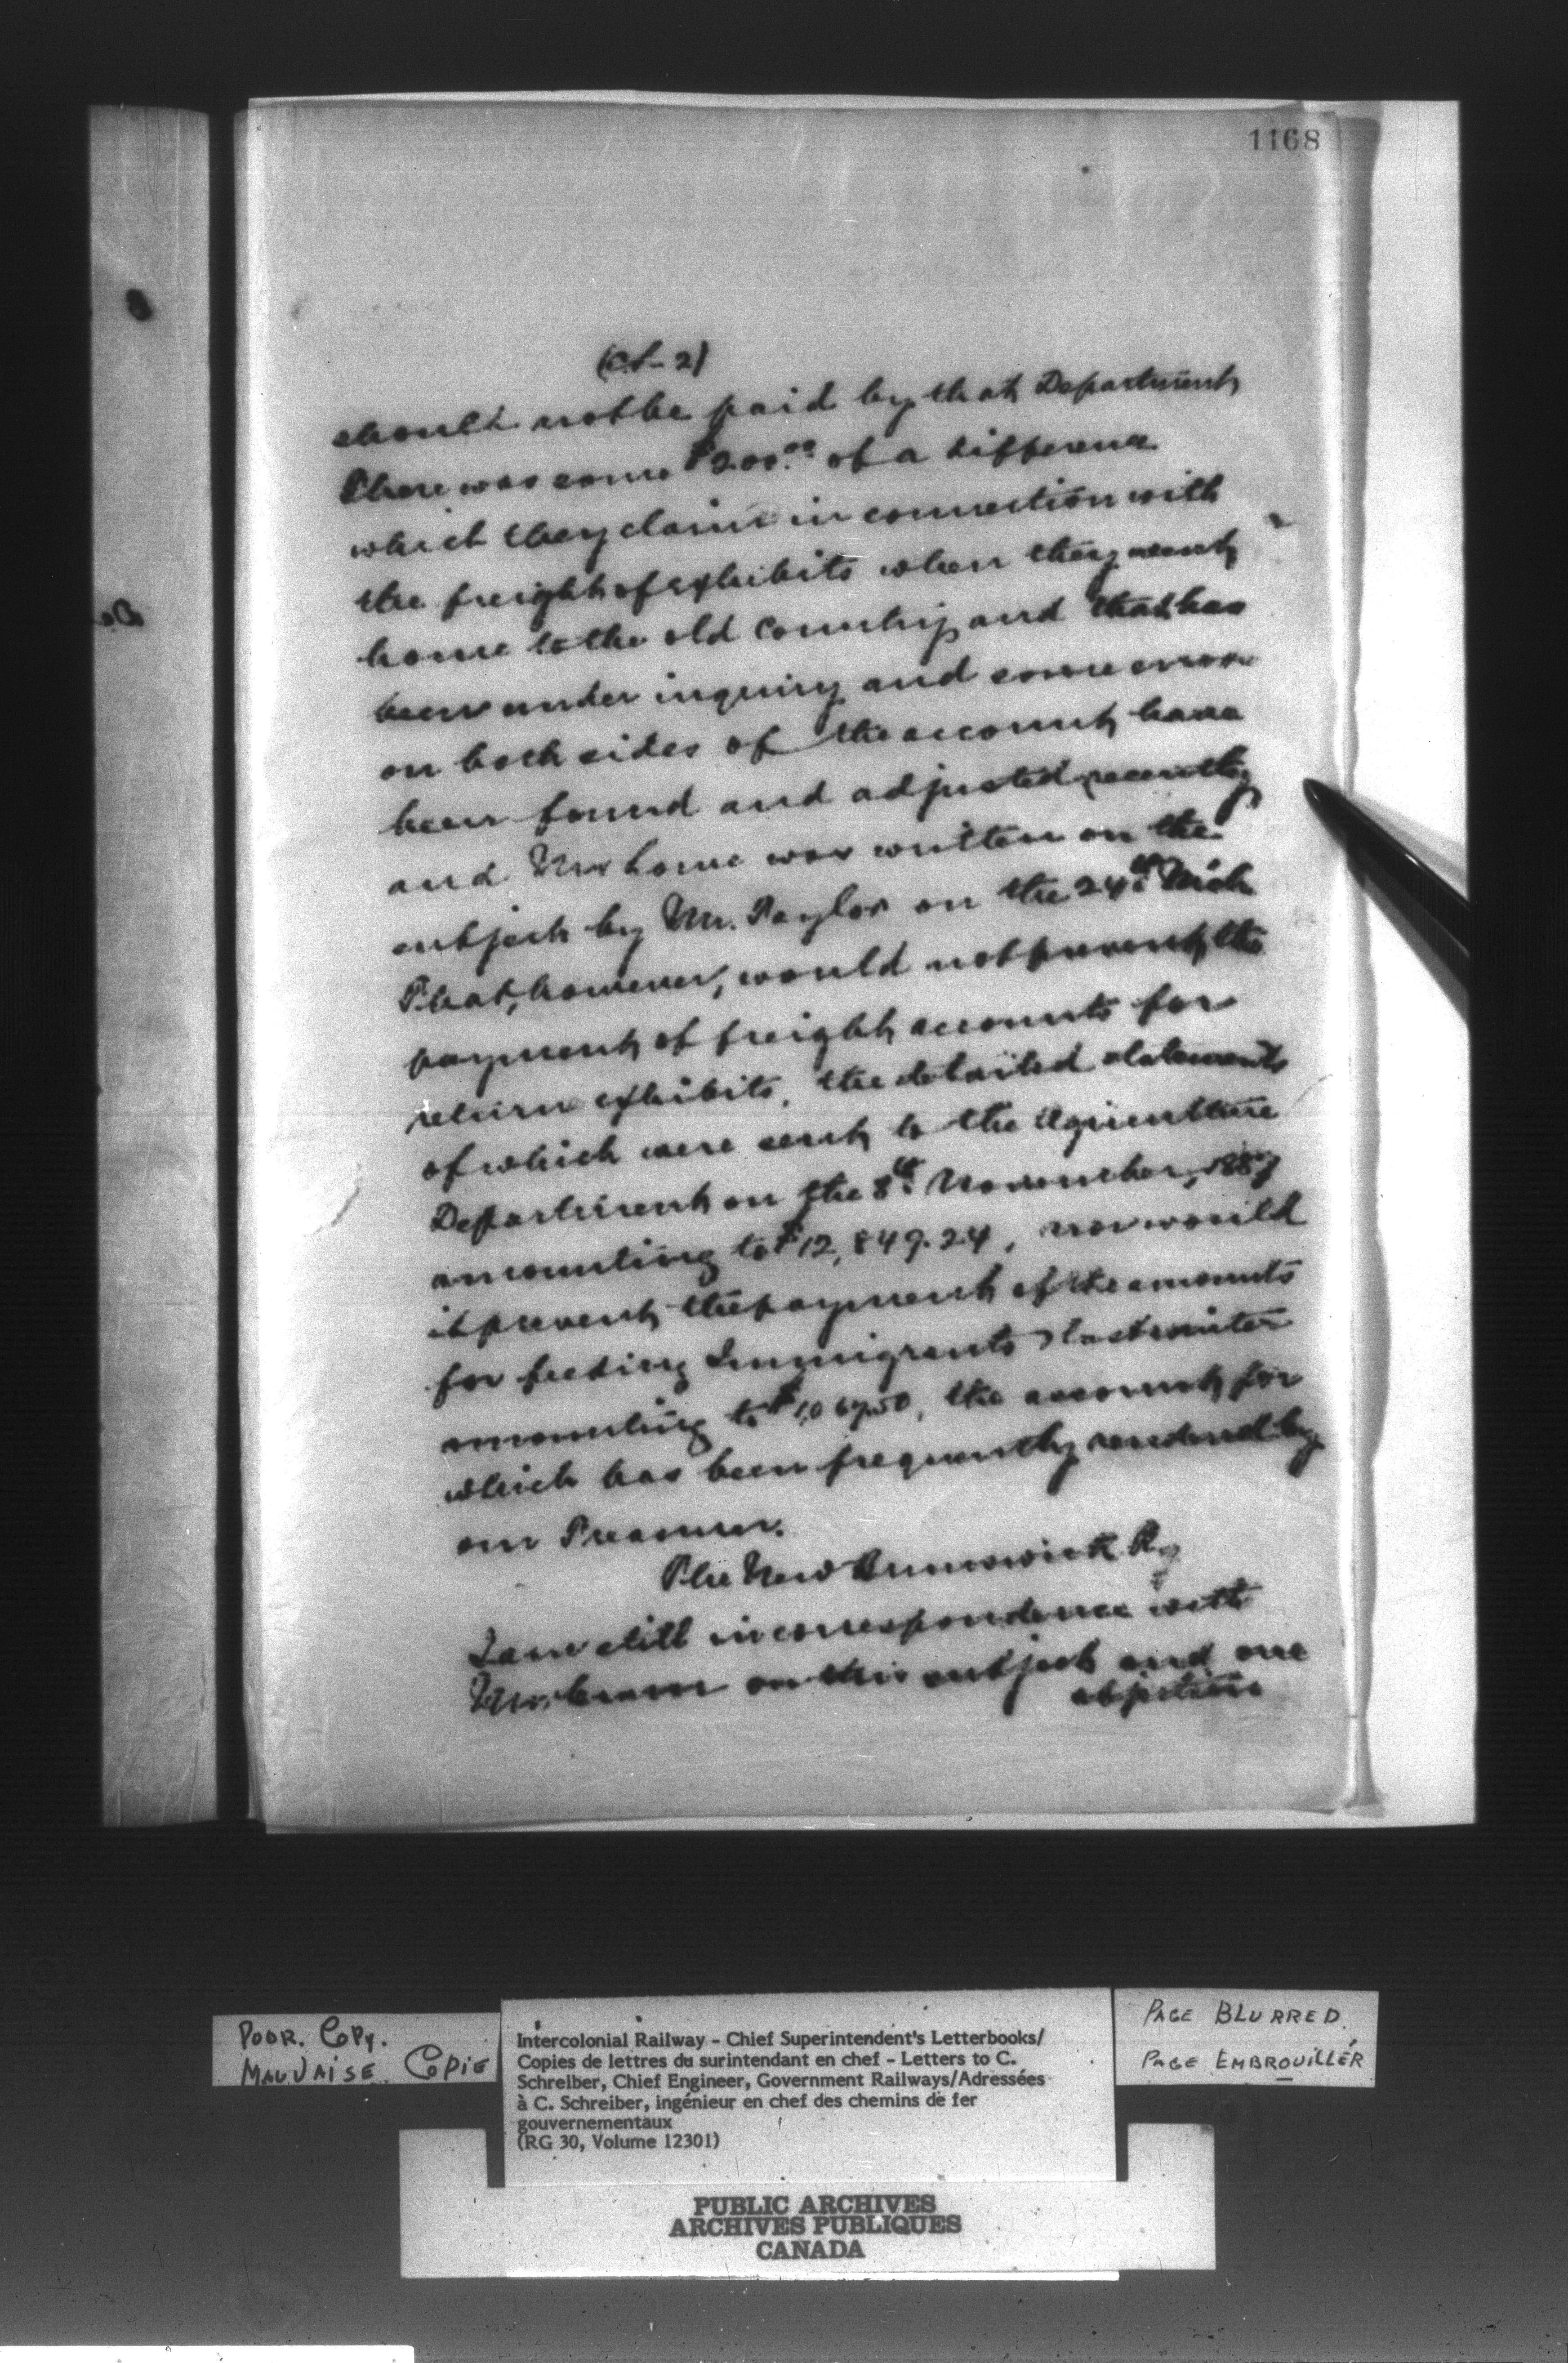 1168
(CS-2)
should not be paid by that Department
There was some $200.00 of a difference
which they claim in connection with
the freight of exhibits when they went
home to the old Country and that has
been under inquiry and some errors
on both sides of the account have
been found and adjusted recently
and Mr Lowe was written on the
subject by Mr. Taylor on the 24th
That, however, would not prevent the
payment of freight accounts for
return exhibits, the detailed statements
of which were sent to the Agriculture
Department on the 8th November, 1887
amounting to $12,849.24, nor would
it prevent the payment of the amounts
for feeding Immigrants last winter
amounting to $1,067.50, the account for
which has been frequently rendered by
our Treasurer.
The New Brunswick Ry
I am still in correspondence with
Mr. Cram on this subject and one
objection
POOR. COPY.
MAUVAISE. COPIE
Intercolonial Railway - Chief Superintendent's Letterbooks/
Copies de lettres du surintendant en chef - Letters to C.
Schreiber, Chief Engineer, Government Railways/Adressées
à C. Schreiber, ingénieur en chef des chemins de fer
gouvernementaux
(RG 30, Volume 12301)
PAGE BLURRED.
PAGE EMBROUILLÉR
PUBLIC ARCHIVES
ARCHIVES PUBLIQUES
CANADA